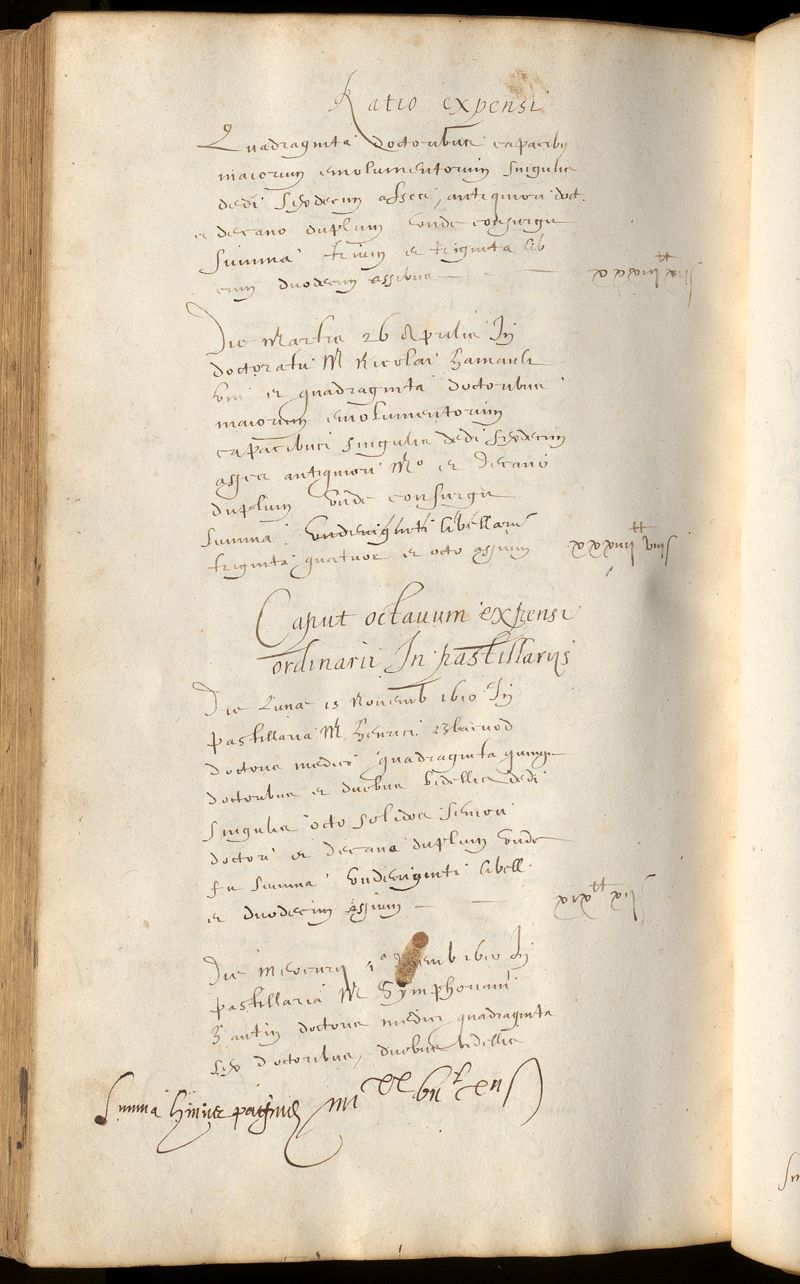 Ratio expensi
Quadraginta doctoribus capacibus
maiorum emolumentorum singulis
dedi sexdecim asses, antiquiori doct.
et decano duplum unde consurgit
summa trium et triginta lib
rum duodecim assibus
xxxiii tt xii s
Die Martis 26 Aprilis In
doctoratu M Nicolai
uni et quadraginta doctoribus
maiorum emolumentorum
capacibus singulis dedi sexdecim
asses antiquiori Mo et Decano
duplum unde consurgit
summa undeviginti libellarum
triginta quatuor et octo assium
xxxiiii tt viii s
Caput octavum expensi
ordinarii In pastillariis
Die Lunae 15 Novemb 1610 In
pastillaria M Henrici Blacvod
doctoris medici quadraginta quinque
doctoribus et duobus bidellis dedi
singulis octo solidos seniori
doctori et decano duplum unde
fit summa undeviginti libell.
et duodecim assium
xix tt xii s
Die Mercurii 1a 1610 In
pastillaria M Symphoriani
doctoris medici quadraginta
sex doctoribus, duobus bidellis
Summa huius paginae